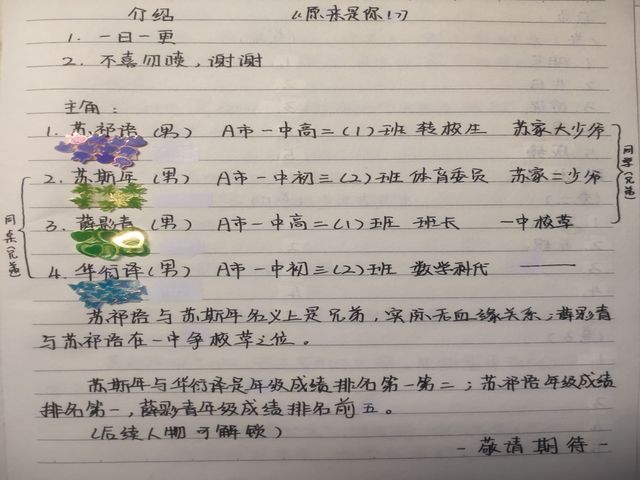 介绍 《原来是你!》
1. 一日一更
2. 不喜勿喷，谢谢
主角：
1. 苏祁语(男) A市一中高二(1)班 转校生 苏家大少爷
2. 苏斯年(男) A市一中初三(2)班 体育委员 苏家二少爷
3. 薛影青(男) A市一中高二(1)班 班长 一中校草
4. 华衍译(男) A市一中初三(2)班 数学科代 ——
同桌(兄弟)
苏祁语与苏斯年名义上是兄弟，实际无血缘关系；薛影青
与苏祁语在一中争校草之位。
苏斯年与华衍译是年级成绩排名第一第二；苏祁语年级成绩
排名第一，薛影青年级成绩排名前五。
(后续人物可解锁)
-敬请期待-